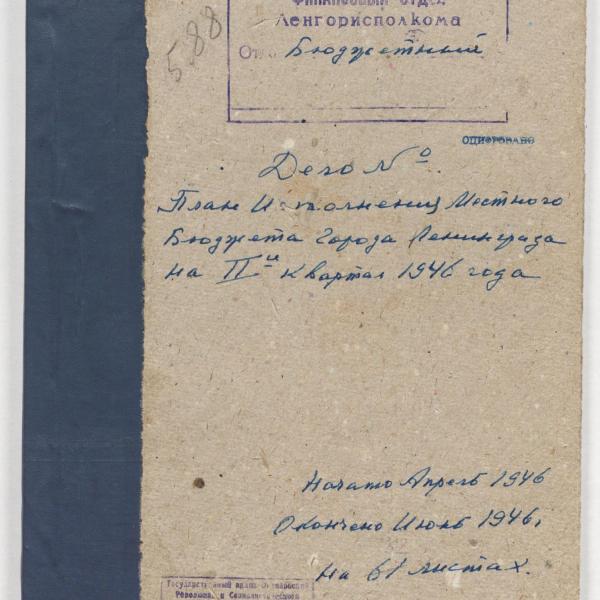 588
ФИНАНСОВЫЙ ОТДЕЛ
Ленгорисполкома
Отд. Бюджетный
ОЦИФРОВАНО
Дело №
План Исполнения Местного
Бюджета Города Ленинграда
на IIй квартал 1946 года
Начато Апрель 1946
Окончено Июнь 1946.
на 61 листах.
Государственный архив Октябрьской
Революции и Социалистического